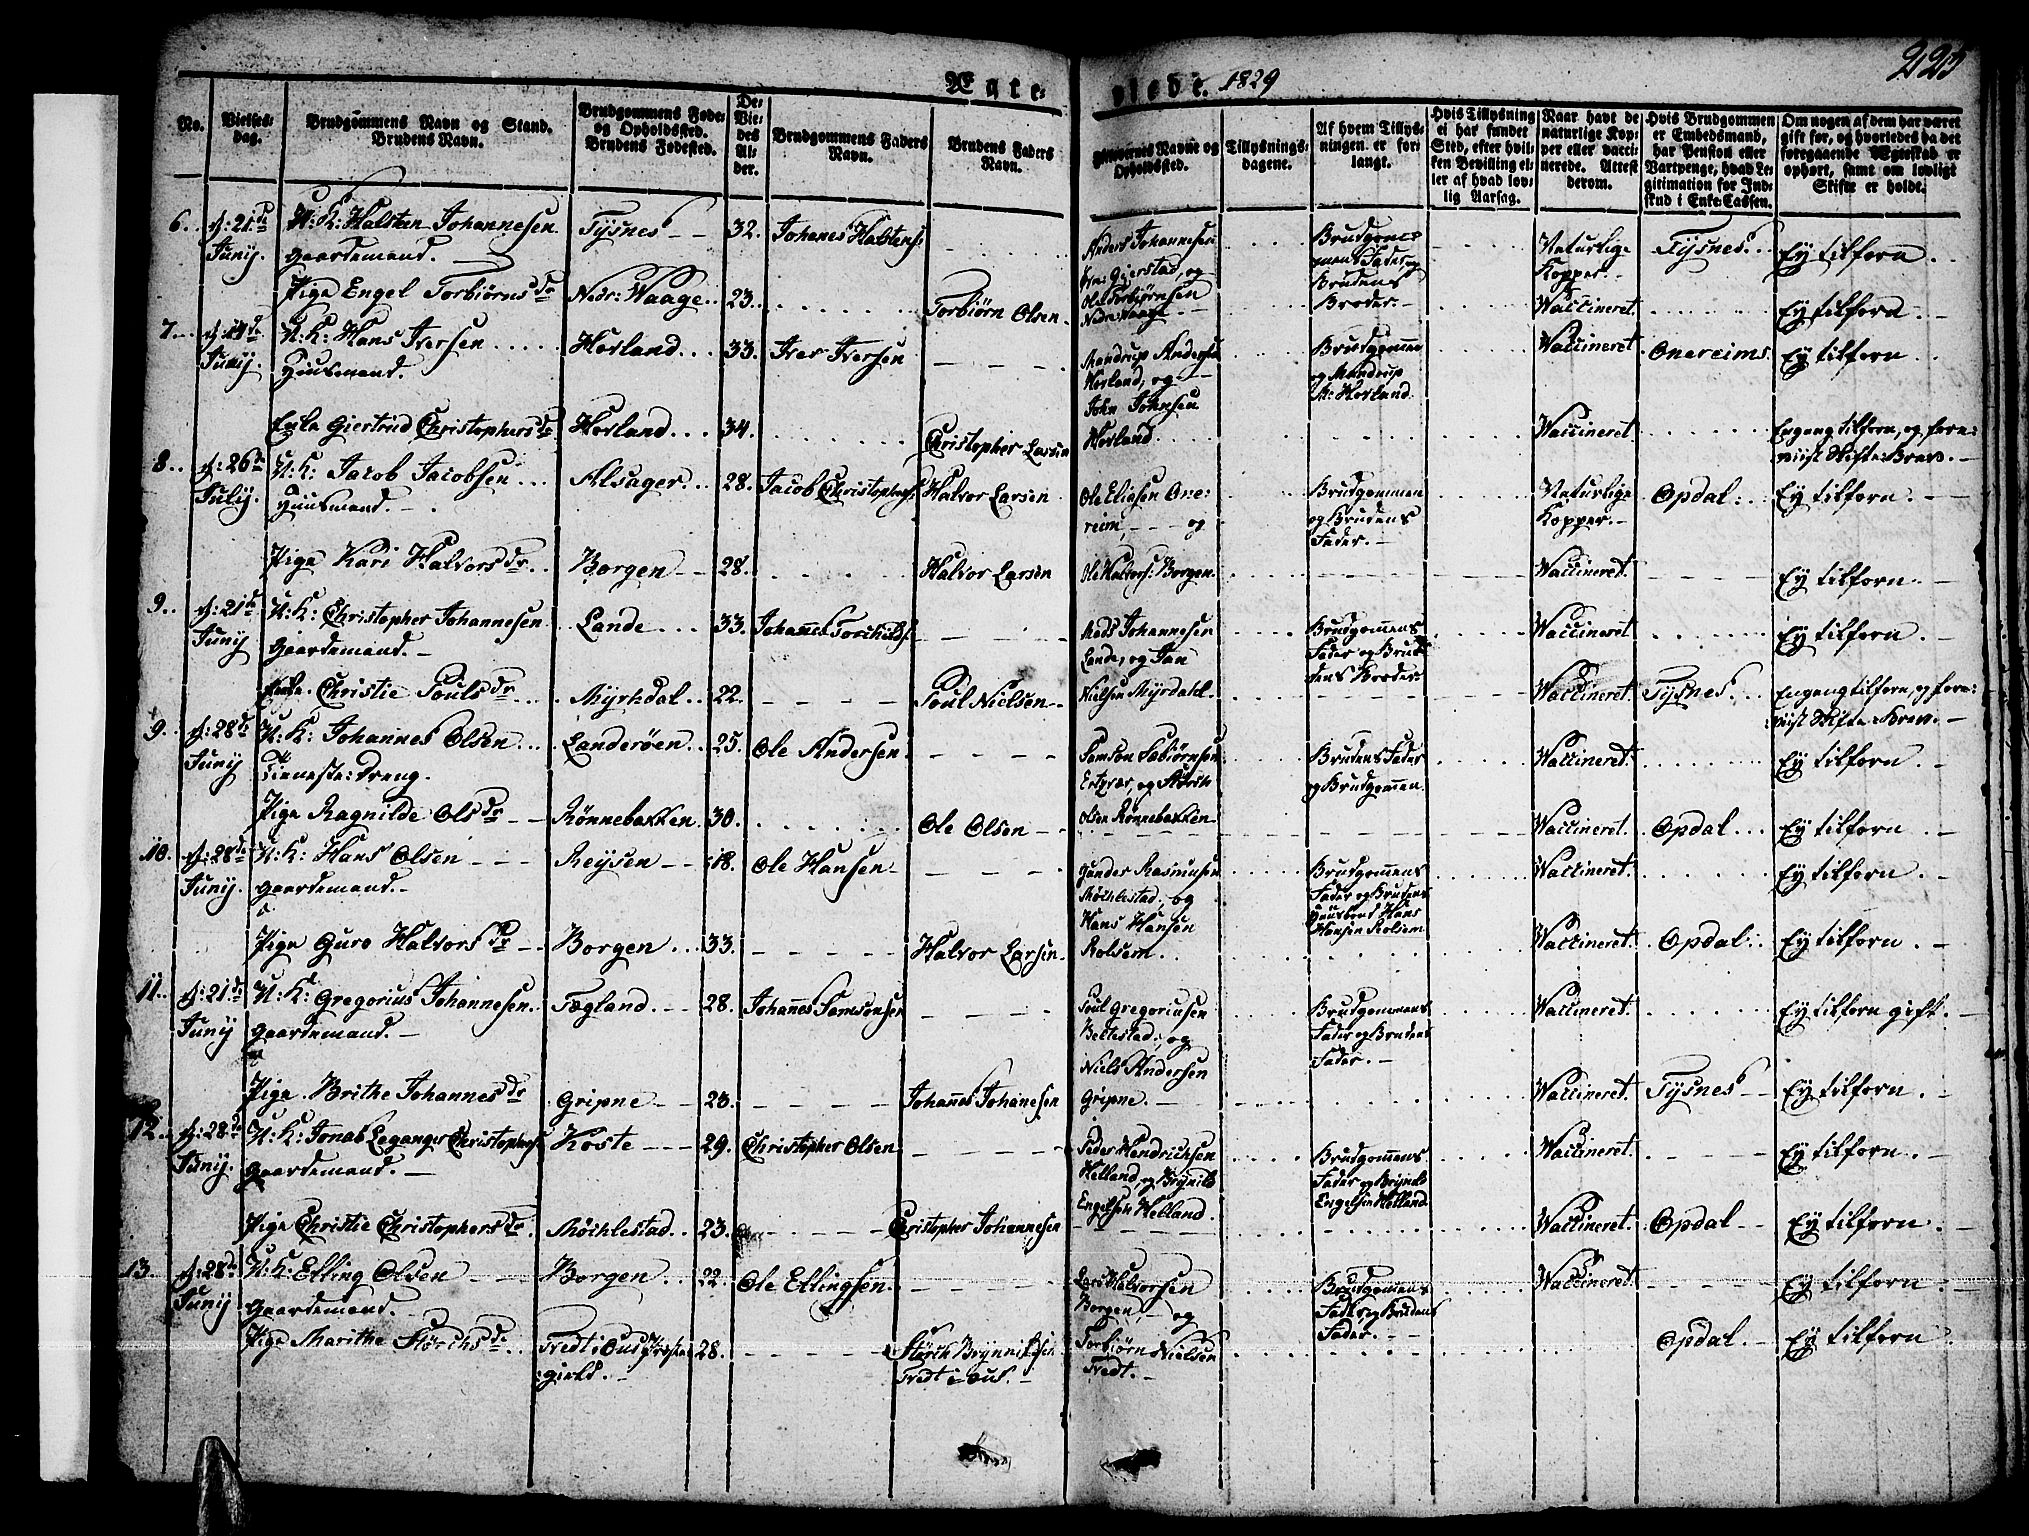 Ægte viede. 1829
225
No. Vielses-dag. Brudgommens Navn og Stand. Brudens Navn. Brudgommens Føde- og Opholdssted. Brudens Fødested. De Vie-des Al-der. Brudgommens Faders Navn. Brudens Faders Navn. Forlovernes Navne og Opholdssted. Tillysnings-dagene. Af hvem Tillys-ningen er for-langt. Hvis Tillysning ei har fundet Sted, efter hvil-ken Bevilling el-ler af hvad lov-lig Aarsag. Naar havt de naturlige Kop-per eller vacci-nerede. Attest derom. Hvis Brudgommen er Embedsmand, har Pension eller Vartpenge, hvad Le-gitimation for Ind-skud i Enke-Cassen. Om nogen af dem har været gift før, og hvorledes da det foregaaende Ægteskab er ophørt, samt om lovligt Skifte er holdt.
6. d: 21de Junij. U: K: Halsten Johannesen Gaardemand. Tysnes 32. Johanes Halstens: Anders Johannesen Gierstad, og Brudgomens Fader, og Naturlige Kopper. Tysnes. Ey tilforn.
Pige Engel Torbiørns dr Nedr: Waage. 23. Torbiørn Olsen. Ole Torbiørnsen Nedre Waage Brudens Broder. Waccineret. Ey tilforn.
7. Junij. U: K: Hans Iversen Huusmand. Horland 33. Iver Iversen Mandrup Andersen Horland, og John Johnsen Brudgommen og Mandrup A: Horland. Waccineret. Onereims. Ey tilforn
Enke Giertrud Christophers dr Horland 34. Christopher Larsen Horland Waccineret Engang tilforn, og forevist Skifte-Brev.
8. d: 26de Julij. U: K: Jacob Jacobsen Huusmand. Alsager 28. Jacob Christophers: Halvor Larsen Ole Eliasen Onereim, og Brudgommen og Brudens Fader. Naturlige Kopper. Opdal. Ey tilforn.
Pige Kari Halvors dr Borgen 28. Halvor Larsen Ole Halvors: Borgen. Waccineret. Ey tilforn.
9. d: 21de Junij U: K: Christopher Johannesen Gaardemand. Lande 33. Johannes Torchilds: Mads Johannesen Lande, og Jan Brudgommens Fader og Brudens Broder. Waccineret Ey tilforn.
Enke Christie Pouls dr Myrkdal 22. Poul Nielsen Nielsen Myrdahl. Waccineret. Tysnes. Engang tilforn, og forevist Skifte-Brev.
9. d: 28de Junij U: K: Johannes Olsen Tieneste-Dreng. Landerøen 25. Ole Andersen Samson Torbiørnsen og Brudens Fader og Brudgommen. Waccineret. Ey tilforn
Pige Ragnilde Ols dr Rønnebakken 30. Ole Olsen Olsen Rønnebakken Waccineret. Opdal Ey tilforn.
10. d: 28de Junij. U: K: Hans Olsen Gaardemand. Reysen 18. Ole Hansen Rasmusen Møchlestad, og Brudgommens Fader og Brudens Huusbond Hans Hansen Rolsem Waccineret. Ey tilforn.
Pige Guro Halvors dr Borgen 33. Halvor Larsen Hans Hansen Rolsem. Waccineret. Opdal Ey tilforn.
11. d: 21de Junij U: K: Gregorius Johannesen Gaardemand. Tegland 28. Johannes Samsonsen Poul Gregoriusen Bellestad, og Brudgommens Fader og Brudens Fader. Waccineret. Ey tilforn gift.
Pige Brithe Johannes dr Gripne 23. Johannes Johannesen Niels Andersen Gripne. Waccineret. Tysnes Ey tilforn.
12. d: 28de Junij. U: K: Jonas Leganger Christophers: Gaardemand. Koste 29. Christopher Olsen Peder Hendrichsen Helland, og Brynild Brudgommens Fader og Brynild Engelsen Helland. Waccineret. Ey tilforn.
Pige Christie Christophers dr Møchlestad 23. Christopher Johannesen Engelsen Helland. Waccineret. Opdal Ey tilforn.
13. d: 28de Junij U: K: Elling Olsen Gaardemand. Borgen 22. Ole Ellingsen Lars Halvorsen Borgen, og Brudgommens Fader og Brudens Fader. Waccineret. Ey tilforn.
Pige Marithe Størchs dr Tvedt i Ous Præstegield. 28. Størch Brynnildsen Tvedt i Ous. Torbiørn Nielsen Tvedt. Opdal. Ey tilforn